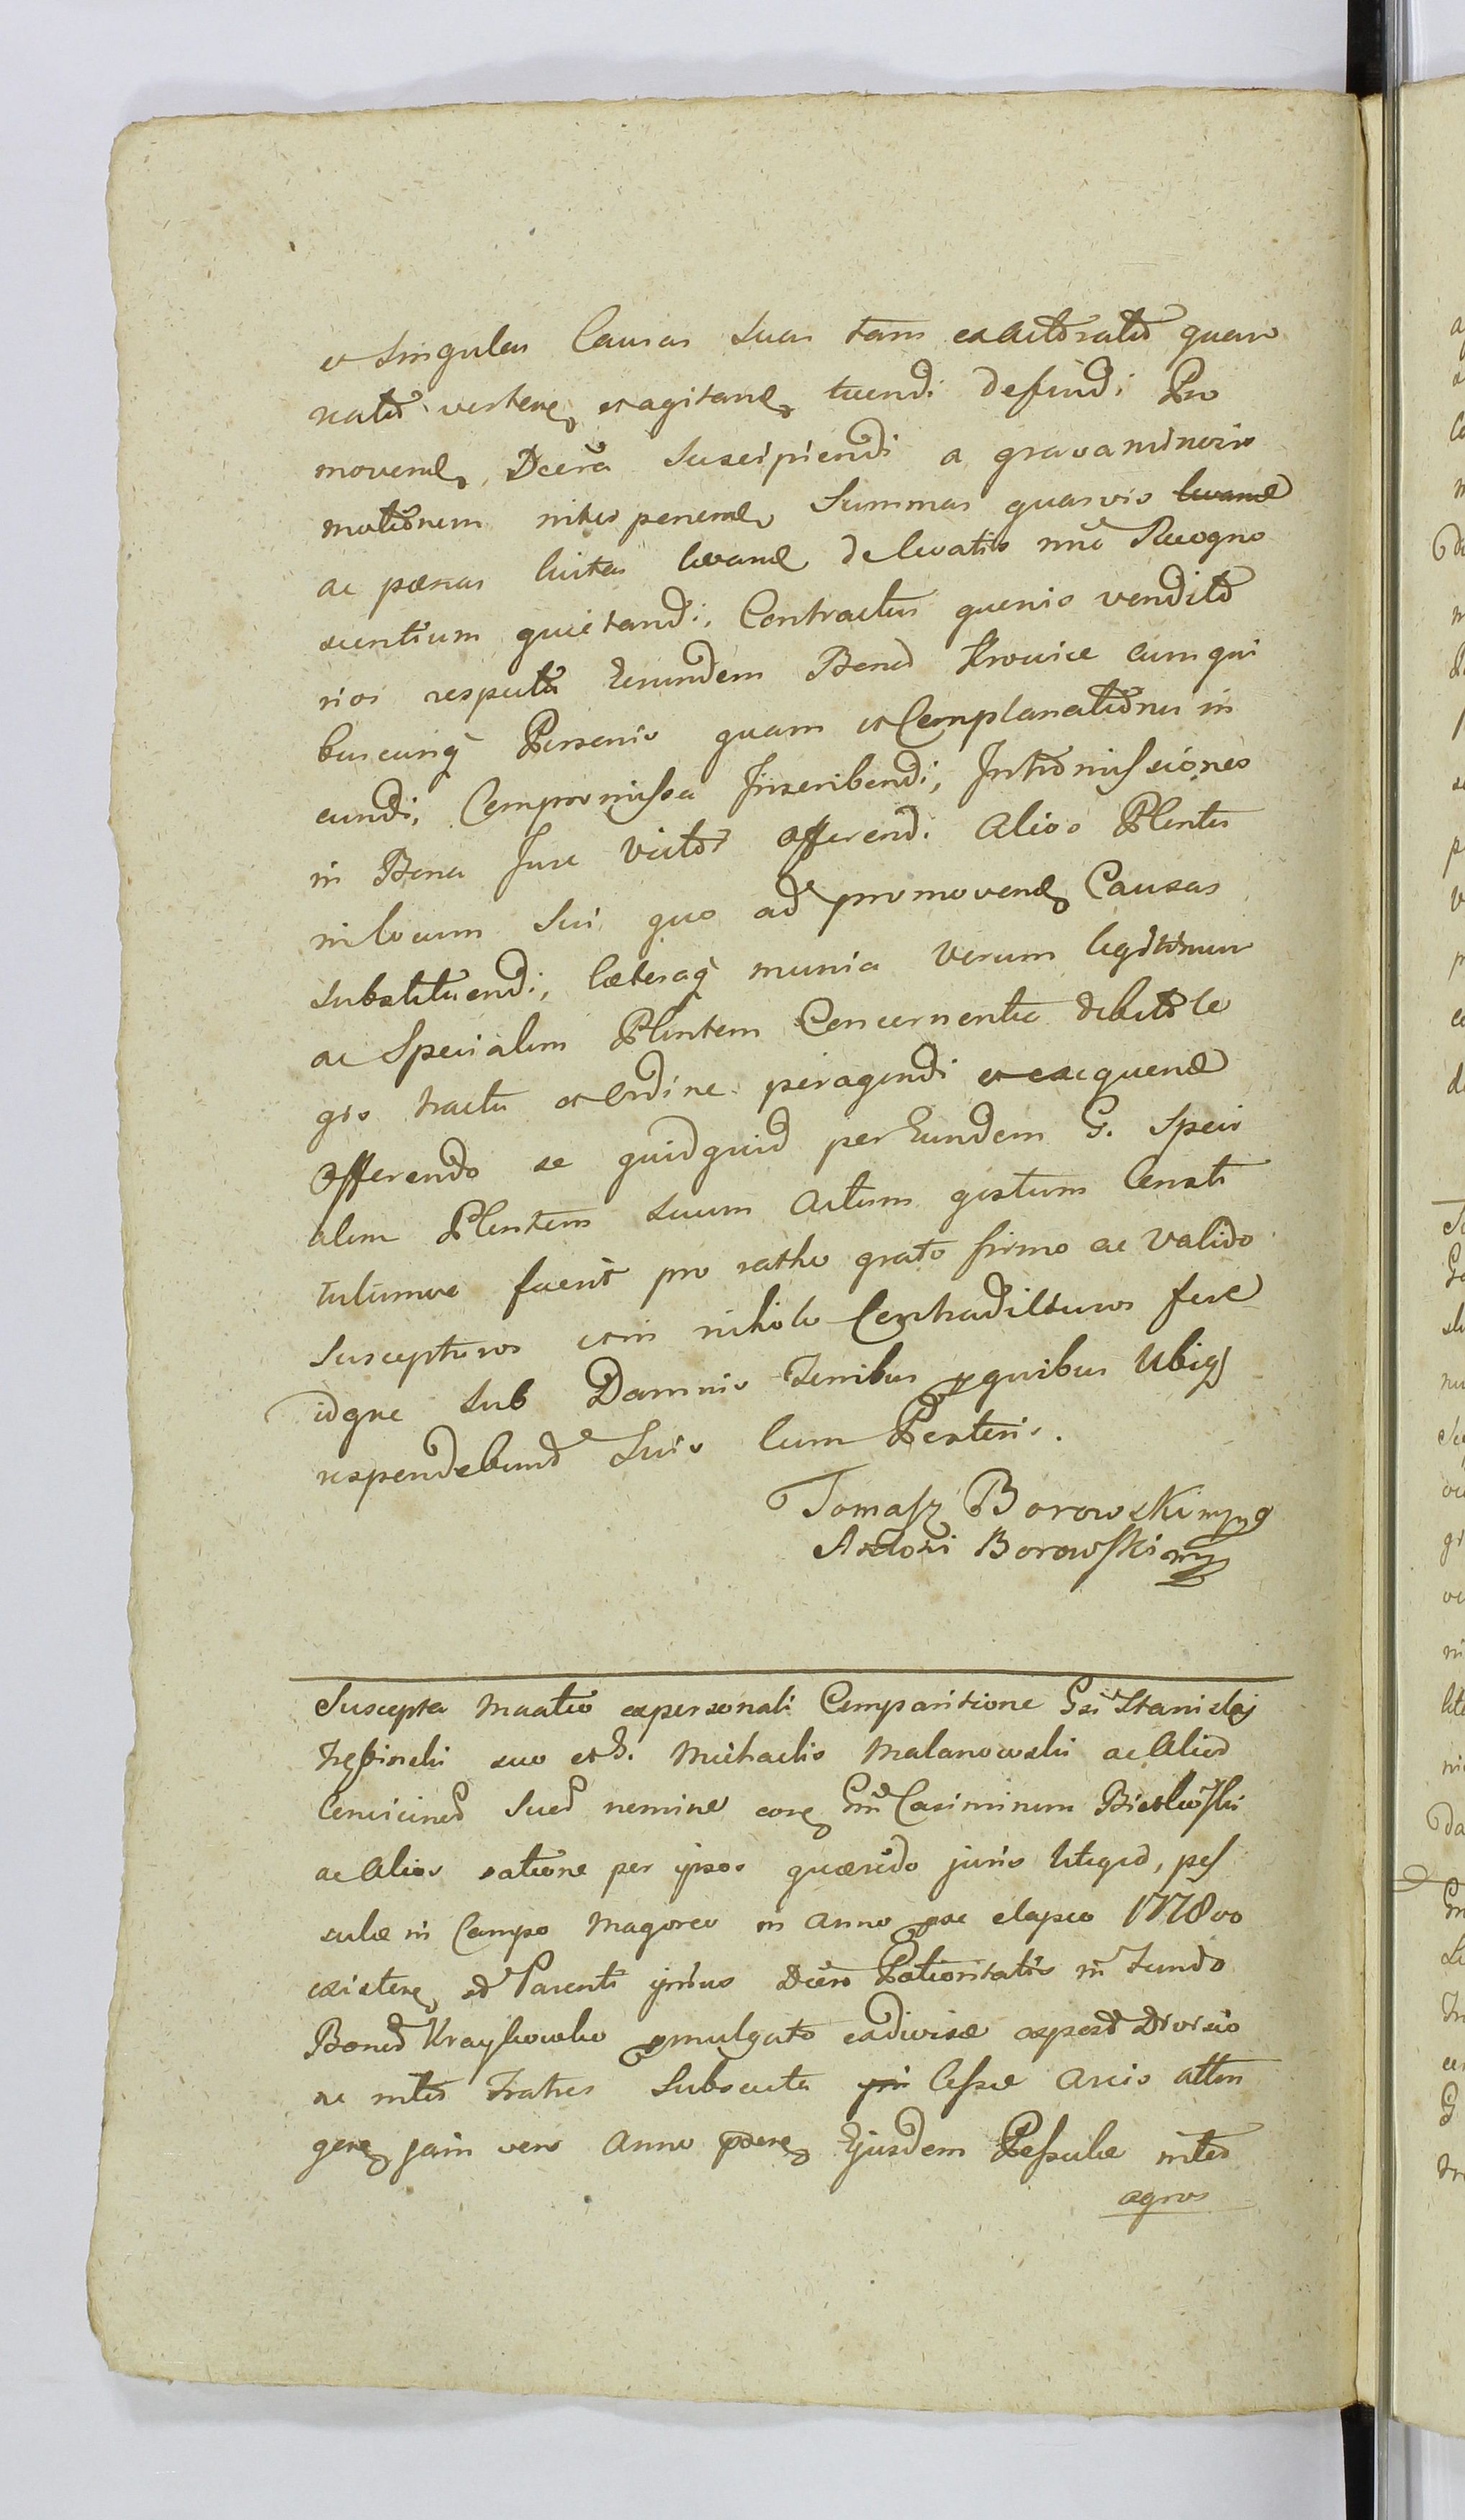 et singulas Causas suas tam ex actoratu quam
reatu vertene et agitand tuendi defend: Pro
movend, Dcera suscipiendi a gravaminoris
motionem interponend, Summas quasvis levand
ac pœnas luitas levand de levatis nunc Recogno
scentium quietandi, Contractus quenis vendito
rios respectu Eorundem Bonor Krowice cum qui
buscunq Personis quam et Complanationes in
eundi, Compromissa Inscribendi, Intromissiones
in Bona Jure victor offerend. Alios Plentes
in locum sui quo ad promovend Causas
substituendi, Cœteraq munia Verum legitimum
ac Specialem Plentem Concernentia debito le
gis tractu et Ordine peragendi et exequend
Offerendo se quidquid per Eundem G. Speci
alem Plentem suum Actum gestum Consti
tutumve fuerit pro ratho grato firmo ac Valido
suscepturos et in nihilo Contradicturos fore
idque sub Damnis Terribus p quibus Ubiq
respondebund Suis Cum Posteris.
Tomasz Borowski mpp
Antoni Borowski mp
Suscepta Maatio ex personali Comparitione Gsi Stanislaj
suo et G. Michaelis Malanowski ac Alior
Convicinor Suor nomine core Gm Casimirum
ac Alios ratione per ipsos quæsito juris litiged, pes
sulæ in Campo Magores in Anno pae elapso 1778vo
existene, ad Parenti ipsius Dcero Potioritatis in Fundo
Bonor pmulgato exdivisæ ex post Divisio
ac inter Fratres Subsecuta Cessæ Arcis attin
gene jam vero Anno psene Ejusdem Pessulæ inter
agros